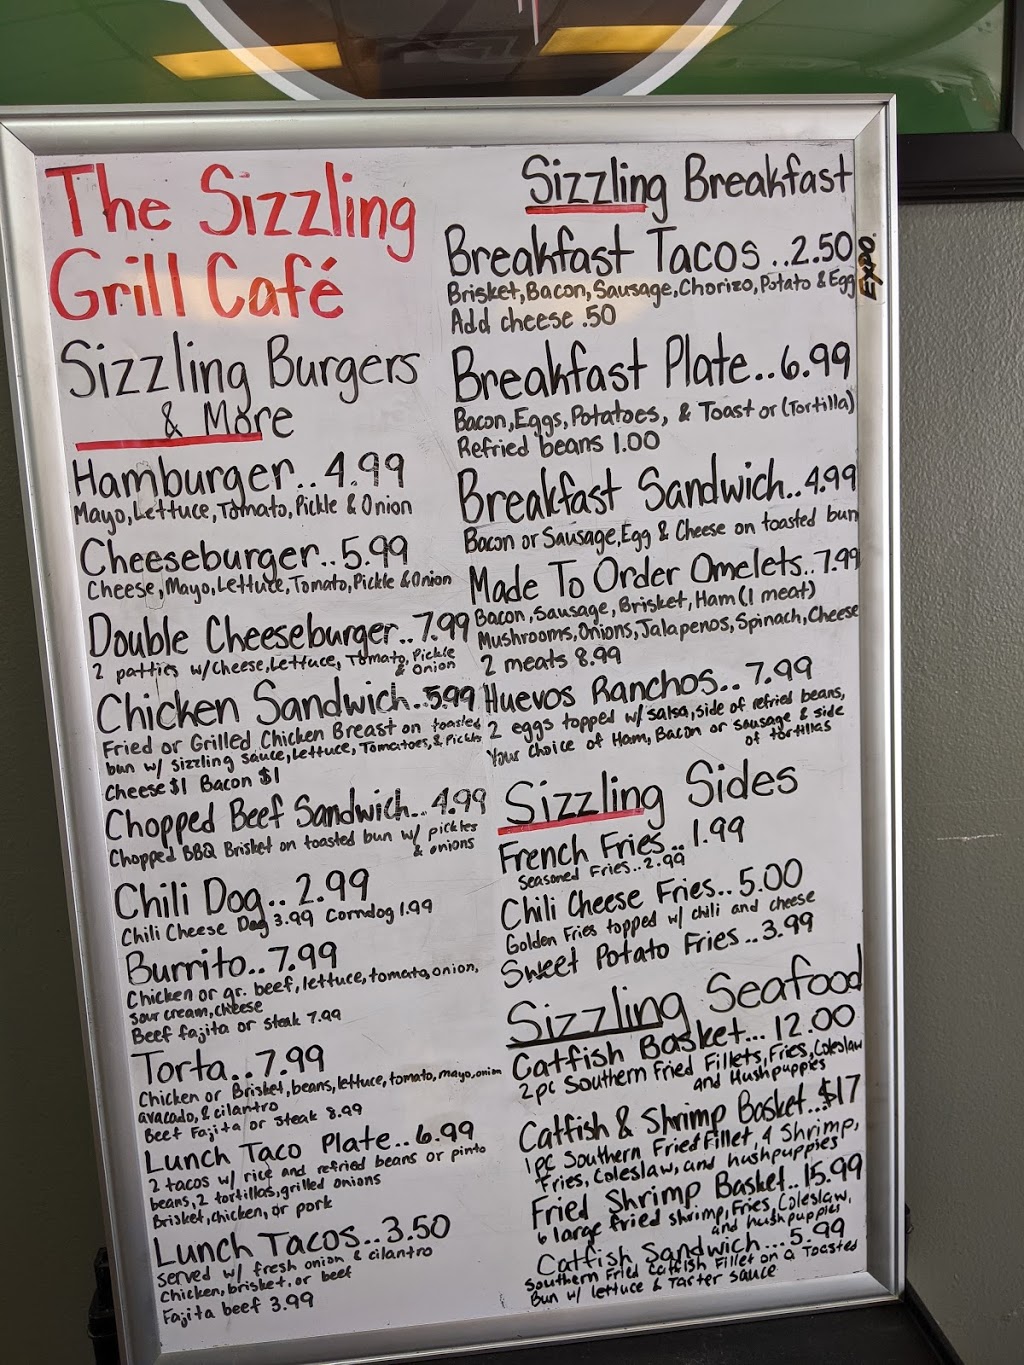 The Sizzling
Grill Café
Sizzling Burgers
& More
Hamburger..4.99
Mayo, Lettuce, Tomato, Pickle & Onion
Cheeseburger..5.99
Cheese, Mayo, Lettuce, Tomato, Pickle & Onion
Double Cheeseburger..7.99
2 patties w/Cheese, Lettuce, Tomato, Pickle
& Onion
Chicken Sandwich..5.99
Fried or Grilled Chicken Breast on toasted
bun w/ Sizzling sauce, Lettuce, Tomatoes, & Pickles
Cheese $1 Bacon $1
Chopped Beef Sandwich..4.99
Chopped BBQ Brisket on toasted bun w/ pickles
& onions
Chili Dog..2.99
Chili Cheese Dog 3.99 Corndog 1.99
Burrito..7.99
Chicken or gr. beef, lettuce, tomato, onion,
sour cream, cheese
Beef fajita or steak 7.99
Torta..7.99
Chicken or Brisket, beans, lettuce, tomato, mayo, onion
avacado, & cilantro
Beef Fajita or Steak 8.99
Lunch Taco Plate..6.99
2 tacos w/ rice and refried beans or pinto
beans, 2 tortillas, grilled onions
Brisket, chicken, or pork
Lunch Tacos..3.50
served w/ fresh onion & cilantro
Chicken, brisket, or beef
Fajita beef 3.99
Sizzling Breakfast
Breakfast Tacos..2.50
Brisket, Bacon, Sausage, Chorizo, Potato & Egg
Add cheese .50
EXPO.
Breakfast Plate..6.99
Bacon, Eggs, Potatoes, & Toast or (Tortilla)
Refried beans 1.00
Breakfast Sandwich..4.99
Bacon or Sausage, Egg & Cheese on toasted bun
Made To Order Omelets..7.99
Bacon, Sausage, Brisket, Ham (1 meat)
Mushrooms, Onions, Jalapenos, Spinach, Cheese
2 meats 8.99
Huevos Ranchos..7.99
2 eggs topped w/ salsa, side of refried beans,
Your choice of Ham, Bacon or Sausage & side
of tortillas
Sizzling Sides
French Fries..1.99
Seasoned Fries..2.99
Chili Cheese Fries..5.00
Golden Fries topped w/ chili and cheese
Sweet Potato Fries..3.99
Sizzling Seafood
Catfish Basket...12.00
2pc Southern Fried Fillets, Fries, Coleslaw
and Hushpuppies
Catfish & Shrimp Basket..$17
1pc Southern Fried Fillet, 4 Shrimp,
Fries, Coleslaw, and hushpuppies
Fried Shrimp Basket..15.99
6 large fried shrimp, Fries, Coleslaw,
and hushpuppies
Catfish Sandwich...5.99
Southern Fried Catfish Fillet on a Toasted
Bun w/ lettuce & Tarter sauce